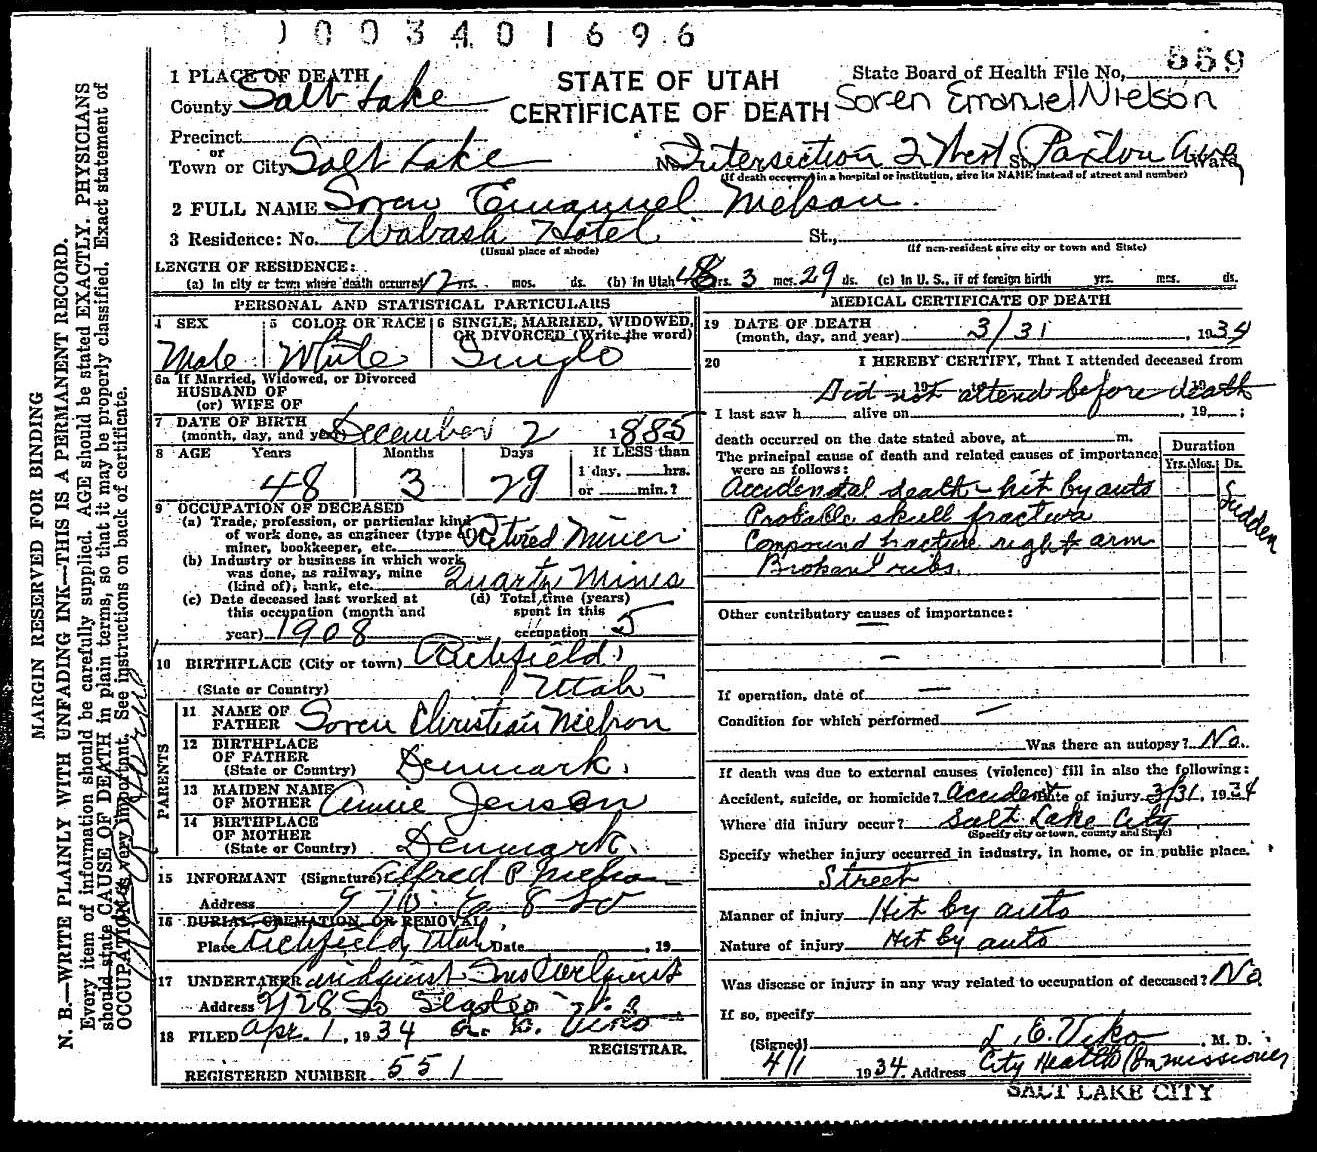 0 0 3 4 0 1 6 9 6
559
1 PLACE OF DEATH
County Salt Lake
STATE OF UTAH
CERTIFICATE OF DEATH
State Board of Health File No,
Soren Emanuel Nielson
Precinct
or
Town or City Salt Lake No Intersection 2 West St. Paxton Ave Ward
(If death occurred in a hospital or institution, give its NAME instead of street and number)
2 FULL NAME Soren Emanuel Nielson.
3 Residence: No. Wabash Hotel St.,
(Usual place of abode) (If non-resident give city or town and State)
LENGTH OF RESIDENCE:
(a) In city or town where death occurred 12 yrs. mos. ds. (b) In Utah 48 yrs. 3 mos. 29 ds. (c) In U. S., if of foreign birth yrs. mos. ds.
PERSONAL AND STATISTICAL PARTICULARS
4 SEX 5 COLOR OR RACE 6 SINGLE, MARRIED, WIDOWED,
OR DIVORCED (Write the word)
Male White Single
6a If Married, Widowed, or Divorced
HUSBAND OF
(or) WIFE OF
7 DATE OF BIRTH
(month, day, and year) December 2 1885
8 AGE Years Months Days If LESS than
1 day, hrs.
or min.?
48 3 29
9 OCCUPATION OF DECEASED
(a) Trade, profession, or particular kind
of work done, as engineer (type of)
miner, bookkeeper, etc. Retired Miner
(b) Industry or business in which work
was done, as railway, mine
(kind of), bank, etc. Quartz Mines
(c) Date deceased last worked at
this occupation (month and
year) 1908
(d) Total time (years)
spent in this
occupation 5
10 BIRTHPLACE (City or town) Richfield,
(State or Country) Utah
PARENTS
11 NAME OF
FATHER Soren Christian Nielson
12 BIRTHPLACE
OF FATHER
(State or Country) Denmark.
13 MAIDEN NAME
OF MOTHER Annie Jenson
14 BIRTHPLACE
OF MOTHER
(State or Country) Denmark.
15 INFORMANT (Signature) Alfred P. Nielson
Address
16 BURIAL, CREMATION, OR REMOVAL
Place Richfield, Utah Date , 19
17 UNDERTAKER
Address 2128 So
18 FILED Apr. 1, 1934
REGISTRAR.
REGISTERED NUMBER 551
MEDICAL CERTIFICATE OF DEATH
19 DATE OF DEATH
(month, day, and year) 3/31 , 1934
20 I HEREBY CERTIFY, That I attended deceased from
Did not attend before death
I last saw h alive on , 19 ;
death occurred on the date stated above, at m.
The principal cause of death and related causes of importance
were as follows:
Duration
Yrs. Mos. Ds.
Accidental death - hit by auto
Sudden
Probable skull fracture
Compound fracture right arm
Broken ribs.
Other contributory causes of importance:
If operation, date of
Condition for which performed
Was there an autopsy? No.
If death was due to external causes (violence) fill in also the following:
Accident, suicide, or homicide? Accident Date of injury 3/31, 1934
Where did injury occur? Salt Lake City
(Specify city or town, county and State)
Specify whether injury occurred in industry, in home, or in public place.
Street
Manner of injury Hit by auto
Nature of injury Hit by auto
Was disease or injury in any way related to occupation of deceased? No
If so, specify
(Signed) L. E. Viko , M. D.
4/1 1934. Address City Health Commissioner
SALT LAKE CITY
MARGIN RESERVED FOR BINDING
N. B.—WRITE PLAINLY WITH UNFADING INK—THIS IS A PERMANENT RECORD.
Every item of information should be carefully supplied. AGE should be stated EXACTLY. PHYSICIANS
should state CAUSE OF DEATH in plain terms, so that it may be properly classified. Exact statement of
OCCUPATION is very important. See instructions on back of certificate.